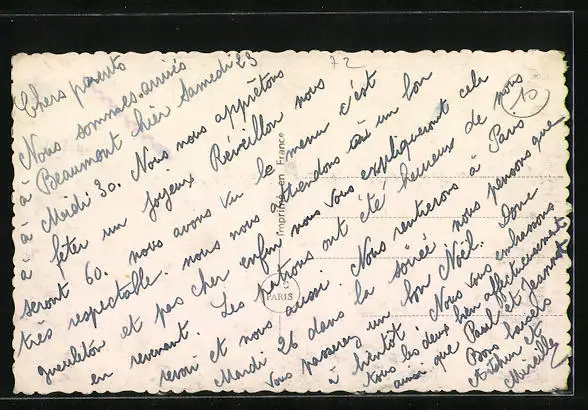 Chers parents
Nous sommes arrivés
à Beaumont hier Samedi 23
à Midi 30. Nous nous apprêtons
à fêter un joyeux Réveillon nous
seront 60. nous avons vu le menu c'est
très respectable. nous nous attendons à un bon
gueuleton et pas cher enfin nous vous expliqueront cela
en revenant. Les patrons ont été heureux de nous
revoir et nous aussi. Nous rentrerons à Paris
Mardi 26 dans la soirée nous pensons que
Vous passerez un bon Noël. Donc
à bientôt. Nous vous embrassons
tous les deux bien affectueusement
ainsi que Paul et Jeannot
Bons baisers
Arthur et
Mireille
72
10
Imprimé en France
PARIS